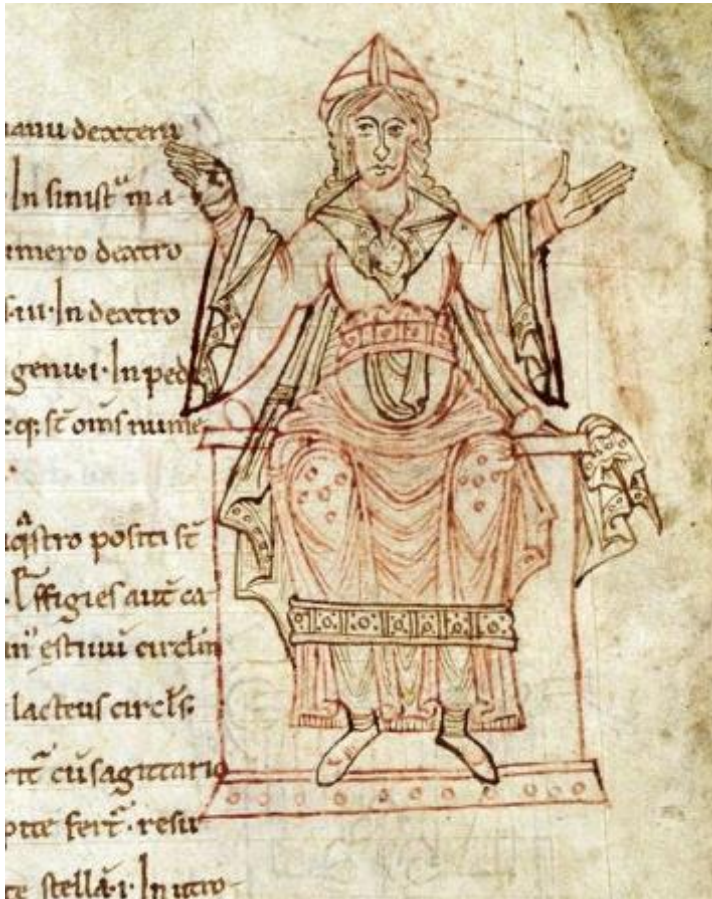 manu dexteru
In sinist a ma
umero dextro
iii In dextro
genu i In ped
q: st oms nume
astro positi st
Effigies aut ca
estiuu circlm
lacteus circls
rit cu sagittario
fert resur
stella i In utro